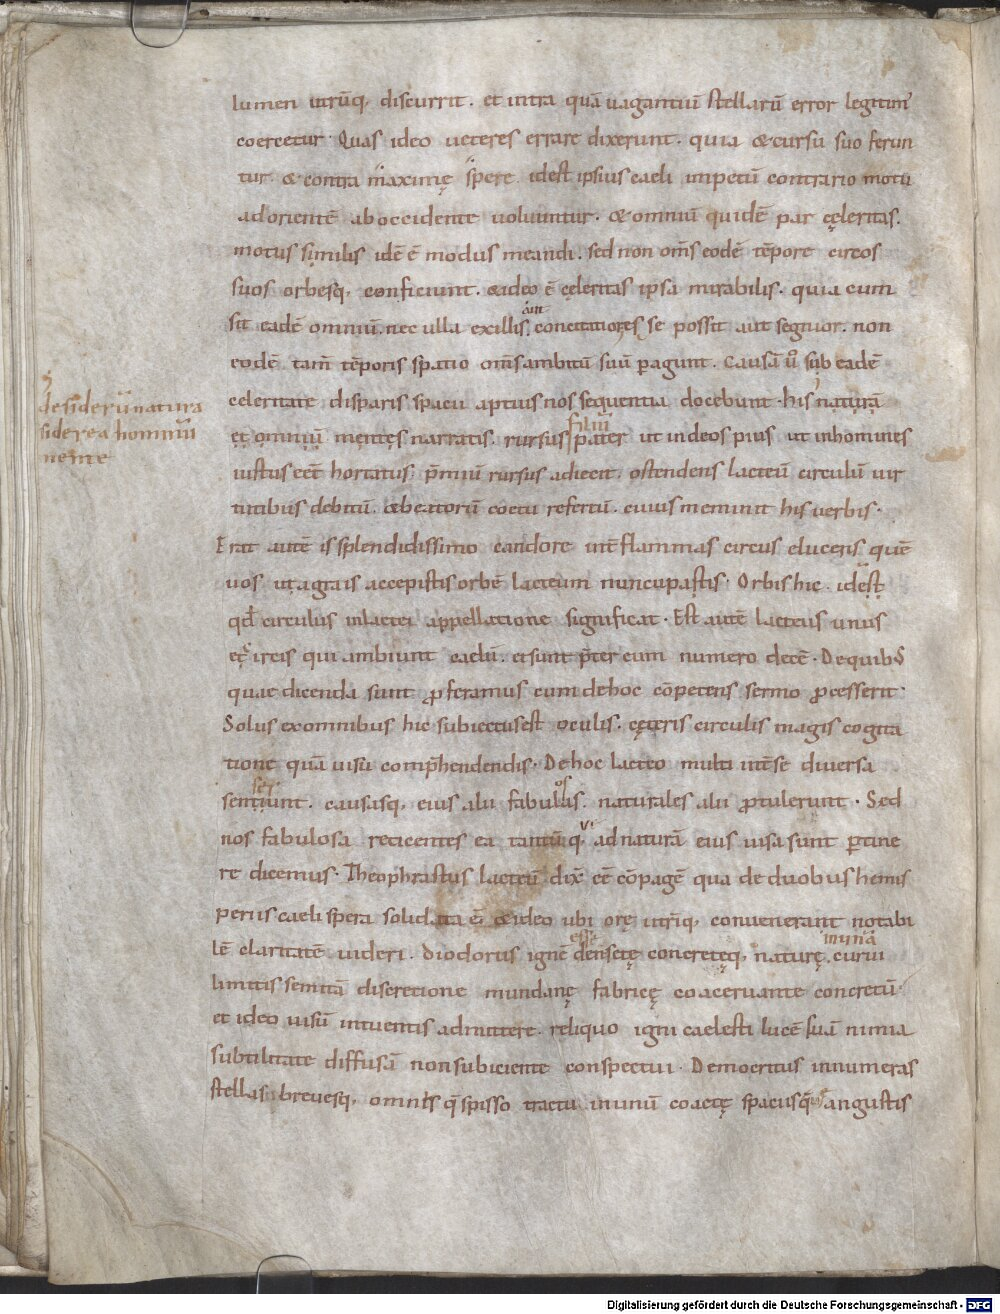 lumen utrūq; discurrit. et intra quā uagantiū stellarū error legitim'
coercetur. Quas ideo ueteres errare dixerunt. quia & cursu suo ferun
tur. & contra maximę spere idest ipsius caeli impetū contrario motu
ad orientē ab occidente uoluuntur. & omniū quidē par cęleritas.
motus similis idē ē modus meandi. sed non om̄s eodē tēpore circos
suos orbesq; conficiunt. & ideo ē cęleritas ipsa mirabilis. quia cum
sit eadē omniū. nec ulla ex illis concitatiores se possit aut segnior. non
aut
eodē tam̄ tēporis spatio om̄s ambitū suū ꝑagunt. Causā ū sub eadē
celeritate disparis spacii aptius nos sequentia docebunt. his naturā
desiderū natura
siderea hominū
mente
et omniū mentes narratis. rursus pater ut in deos pius ut in homines
filiū
iustus ēēt hortatus. p̄miū rursus adiecit. ostendens lacteū circulū uir
tutibus debitū. & beatorū coetu refertū. cuius meminit his uerbis.
Erat autē is splendidissimo candore int̄ flammas circus elucens quē
uos ut a grais accepistis orbē lacteum nuncupastis. Orbis hic. idest
qd̄ circulus in lactei appellatione significat. Est autē lacteus unus
et circis qui ambiunt caelū. et sunt p̄ter eum numero decē. De quibus
quae dicenda sunt ꝓferamus cum de hoc cōpetens sermo ꝓcesserit.
Solus ex omnibus hic subiectus est oculis. cęteris circulis magis cogita
tione quā uisu comp̄hendendis. De hoc lacteo multi int̄ se diuersa
senserunt. causasq; eius alii fabulosas. naturales alii ꝓtulerunt. Sed
nos fabulosa reticentes ea tantū q; ad naturā eius uisa sunt ꝑtine
re dicemus. Theophrastus lacteū dix̄ ēē cōpagē qua de duobus hemis
periis caeli spera solidata ē. & ideo ubi orę utriq; conuenerant notabi
lē claritatē uideri. diodorus ignē densetę concretęq; naturę. curui
esse
in unā
limitis semitā discretione mundanę fabricę coaceruante concretū.
et ideo uisū intuentis admittere. reliquo igni caelesti lucē suā nimia
subtilitate diffusā non subiciente conspectui. Democritus innumeras
stellas breuesq; omnis q̄ spisso tractu in unū coactę spaciisq; angustis